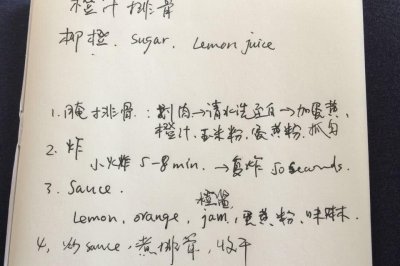 橙汁排骨
柳橙. Sugar. Lemon juice
1. 腌排骨: 剁肉→清水洗至白→加蛋黄、
橙汁. 玉米粉. 蛋黄粉. 抓匀
2. 炸
小火炸 5-8min. →复炸 50 seconds.
3. Sauce.
橙留
Lemon, orange, jam, 蛋黄粉. 味淋.
4. 炒sauce, 煮排骨, 收干